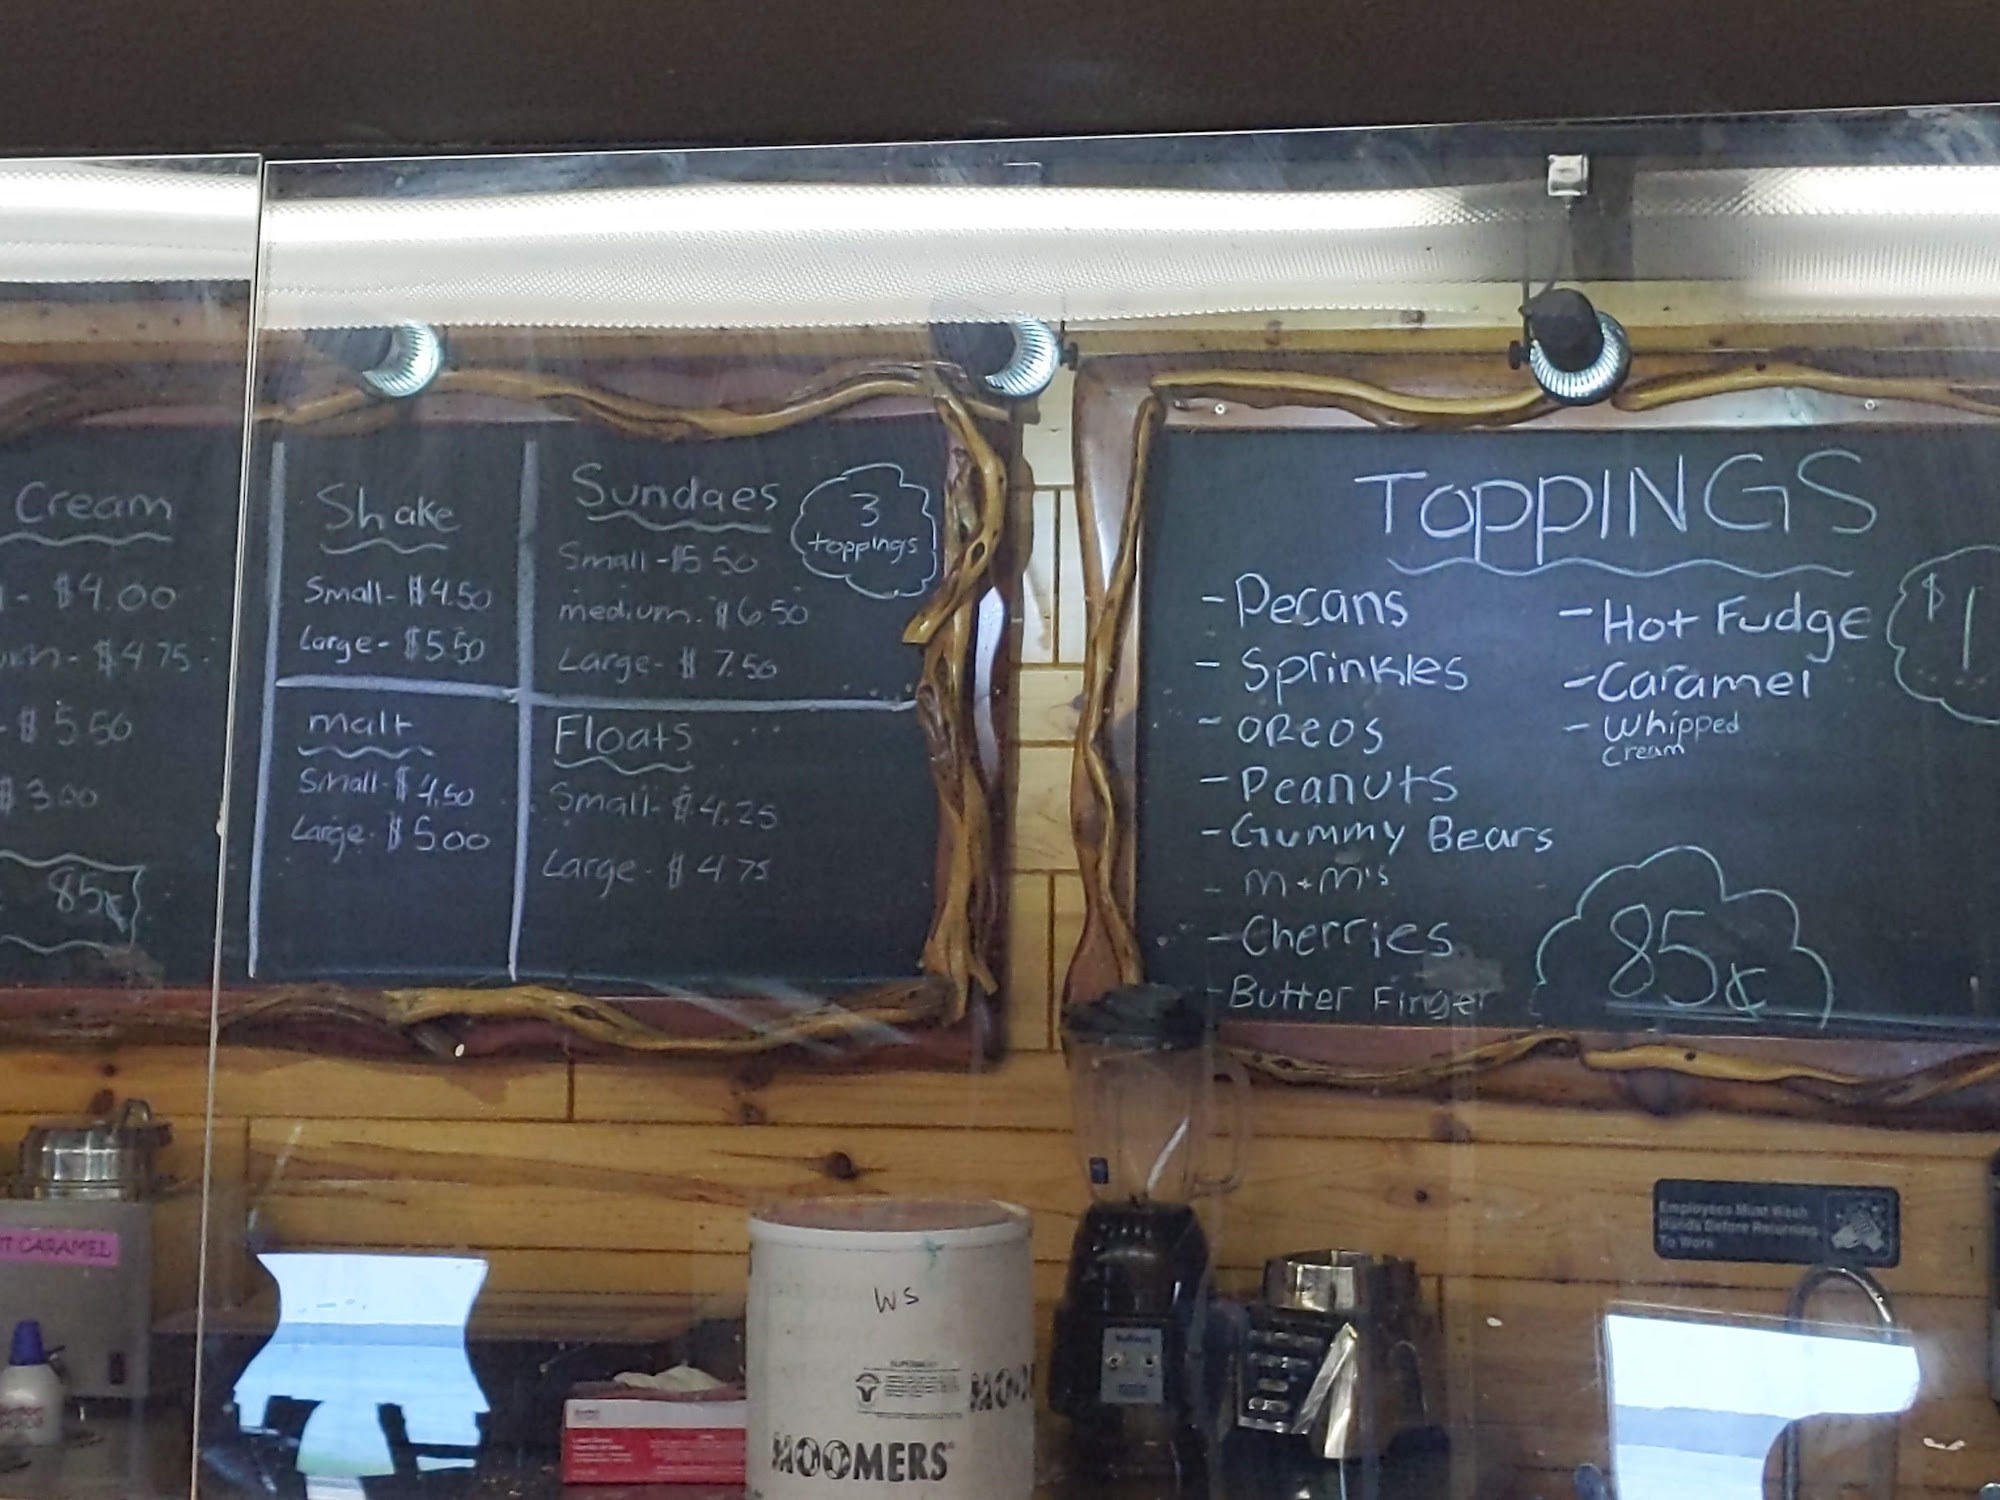 Cream
$4.00
$4.75
$5.50
$3.00
85¢
Shake
Small - $4.50
Large - $5.50
malt
Small - $4.50
Large - $5.00
Sundaes
3
toppings
Small - $5.50
medium - $6.50
Large - $7.50
Floats
Small - $4.25
Large - $4.75
TOPPINGS
- Pecans
- Sprinkles
- OREOS
- Peanuts
- Gummy Bears
- M+M's
- Cherries
- Butter Finger
- Hot Fudge
- Caramel
- Whipped
Cream
$1
85¢
CARAMEL
WS
MOOMERS
Employees Must Wash
Hands Before Returning
To Work